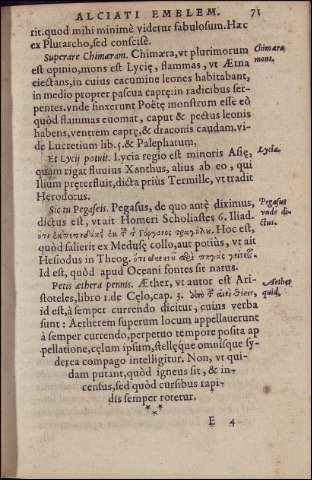 ALCIATI EMBLEM. 71
rit. quod mihi minimè videtur fabulosum. Hæc
ex Plutarcho, sed conscisè.
Superare Chimæram. Chimæra, vt plurimorum
Chimæra,
mons.
est opinio, mons est Lycię, flammas, vt Ætna
eiectans, in cuius cacumine leones habitabant,
in medio propter pascua caprę: in radicibus ser-
pentes. vnde finxerunt Poëtę monstrum esse eò
quòd flammas euomat, caput & pectus leonis
habens, ventrem caprę, & draconis caudam. vi-
de Lucretium lib. 5. & Palephatum.
Et Lycij potuit. Lycia regio est minoris Asię,
Lycia.
quam rigat fluuius Xanthus, alius ab eo, qui
Ilium pręterfluit, dicta priùs Termille, vt tradit
Herodotus.
Sic tu Pegaseis. Pegasus, de quo antè diximus,
Pegasus
vnde di-
ctus.
dictus est, vt ait Homeri Scholiastes 6. Iliad.
Hoc est,
quòd salierit ex Medusę collo, aut potiùs, vt ait
Hesiodus in Theog.
Id est, quòd apud Oceani fontes sit natus.
Petis æthera pennis. Æther, vt autor est Ari-
Aether
quid.
stoteles, libro 1. de Cęlo, cap. 3.
id est, à semper currendo dicitur, cuius verba
sunt: Aetherem superum locum appellauerunt
à semper currendo, perpetuo tempore posita ap
pellatione, cęlum ipsum, stellęque omnisque sy-
derea compago intelligitur. Non, vt qui-
dam putant, quòd igneus sit, & in-
census, sed quòd cursibus rapi-
dis semper rotetur.
***
E 4